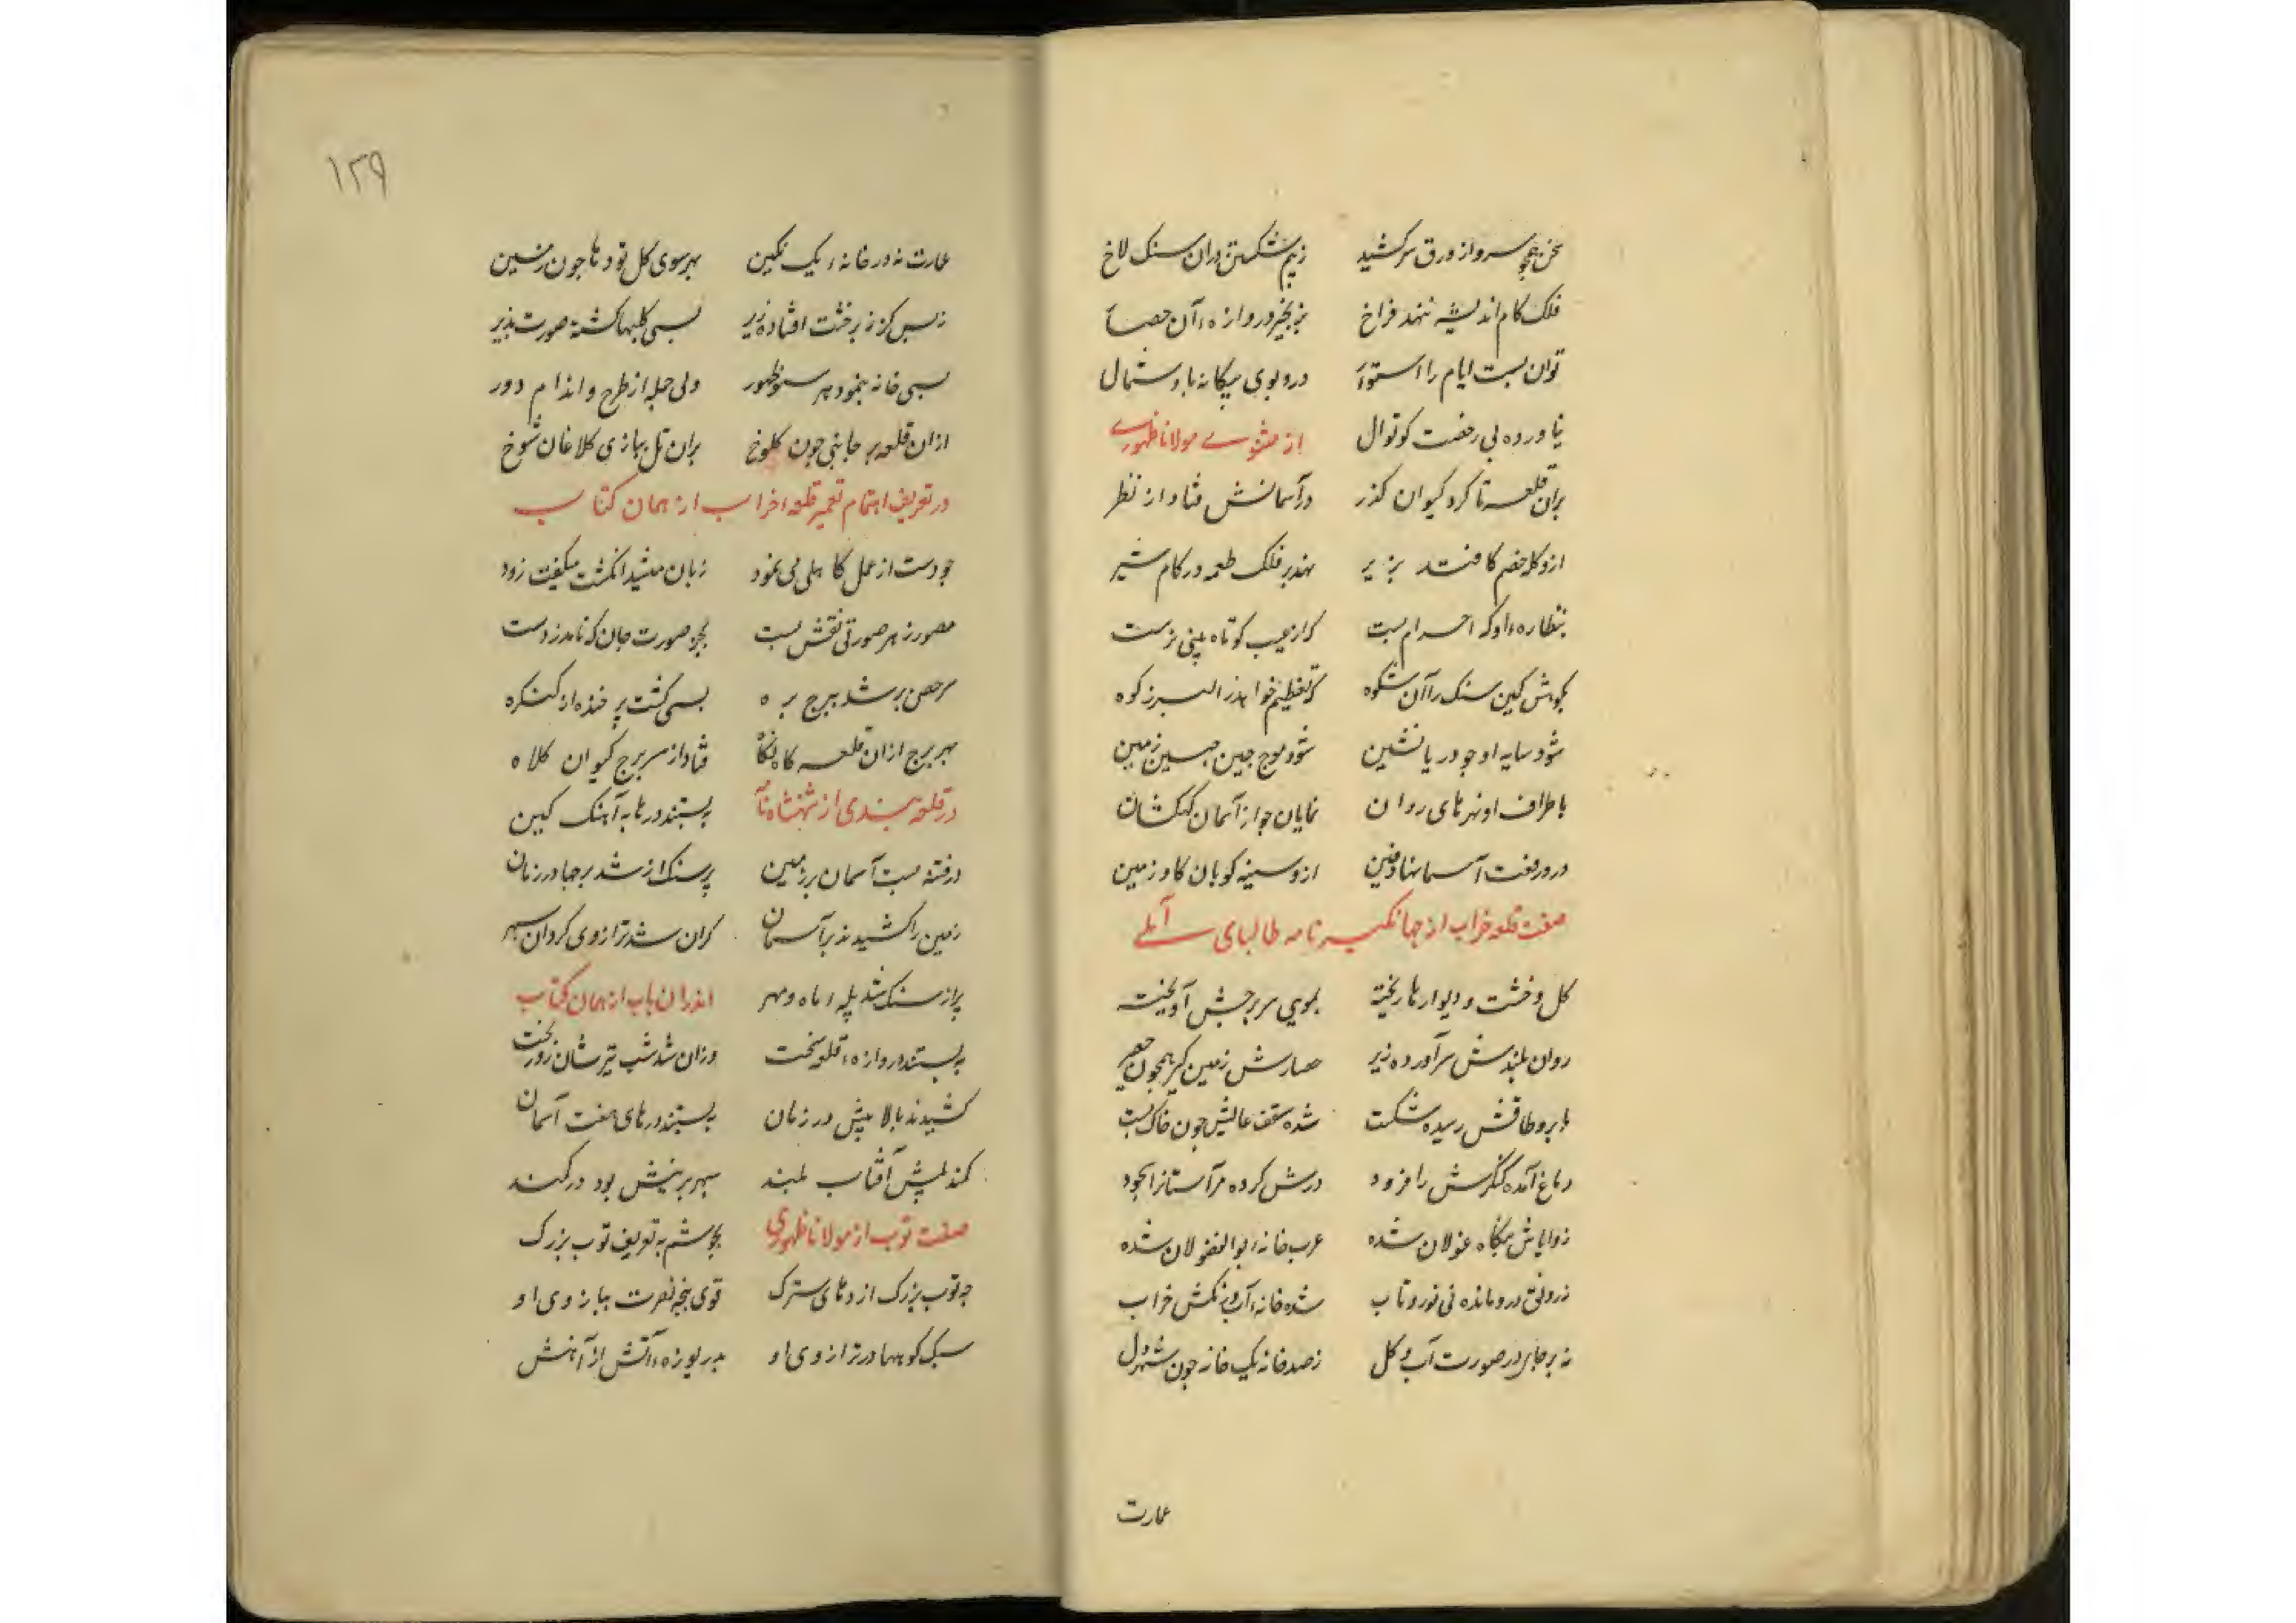 سخن همچو سرو از ورق سر کشید  ز بیم شکستن دران سنک لاخ
فلک کام اندیشه ننهد فراخ  بزنجیر دروازه ء آن حصا
توان بست ایام را استوا  درو بوی بیکانه باد شمال
نیاورده بی رخصت کوتوال  از مثنوی مولانا ظهوری
بران قلعه تا کرد کیوان کذر  در آسمانش فتاد از نظر
ازو کله خصم کافتد بزیر  نهد بر فلک طعمه در کام شیر
بنظاره ء او که احرام بست  که از عیب کوتاه بینی نرست
بکوهش کین سنک را آن شکوه  که تعظیم خواهد ز البرز کوه
شود سایه او چو دریا نشین  شود موج چین جبین زمین
باطراف او نهرهای روان  نمایان چو از آسمان کهکشان
درو رفعت آسمانها دفین  ازو سینه کوبان کاو زمین
صفت قلعه خراب از جهانکیر نامه طالبای آملی
کل و خشت و دیوارها ریخته  بمویی سر برجش آویخته
روان بلندش سر آورده زیر  حصارش زمین کیر همچون حصیر
بابرو طاقش رسیده شکست  شده سقف عالیش چون خاک پست
دماغ آمده کنکرش را فرود  درش کرده مر آستانرا سجود
زوایاش بنکاه غولان شده  عرب خانه ء بوالفضولان شده
ز رونق درو مانده نی نور و تاب  شده خانه ء آب و رنکش خراب
نه بر جای در صورت آب و کل  ز صد خانه یک خانه چون شهر دل
عمارت
۱۲۹
عمارت نه در خانه ء یک نکین  بهر سوی کل تودها چون زمین
ز بس کز زبر خشت افتاده زیر  بسی کلبها کشته صورت پذیر
بسی خانه بنمود هر سو ظهور  ولی جمله از طرح و اندام دور
ازان قلعه بر جا بنی چون کلوخ  بران تل ببازی کلاغان شوخ
در تعریف اهتمام تعمیر قلعه ء خراب از همان کتاب
چو دست از عمل کاهلی می نمود  زبان میشد انکشت میکفت زود
مصور ز هر صورتی نقش بست  بجز صورت جان که نامد ز دست
سر حصن بر شد ببرج بره  بسی کشت پر خنده از کنکره
بهر برج ازان قلعه کاه نکا  فتاد از سر برج کیوان کلاه
در قلعه بندی از شهنشاه نا  ببستند درها به آهنک کین
در فتنه بست آسمان بر زمین  پر سنک از شد بر جا در زمان
زمین را کشیدند بر آسمان  کران شد ترازوی کردان سپهر
پر از سنک شد پله ء ماه و مهر  اندران باب از همان کتاب
ببستند دروازه ء قلعه سخت  وزان شد شب تیرشان روز بخت
کشیدند بالا بپش در زمان  ببستند درهای هفت آسمان
کمند بپش آفتاب بلند  سپهر برینش بود در کمند
صفت توب از مولانا ظهوری  بجوشم به تعریف توب بزرک
چه توب بزرک اژدهای سترک  قوی پنجه نصرت ببازوی او
سبک کوهها در ترازوی او  بدریوزه ء آتش از آهنش